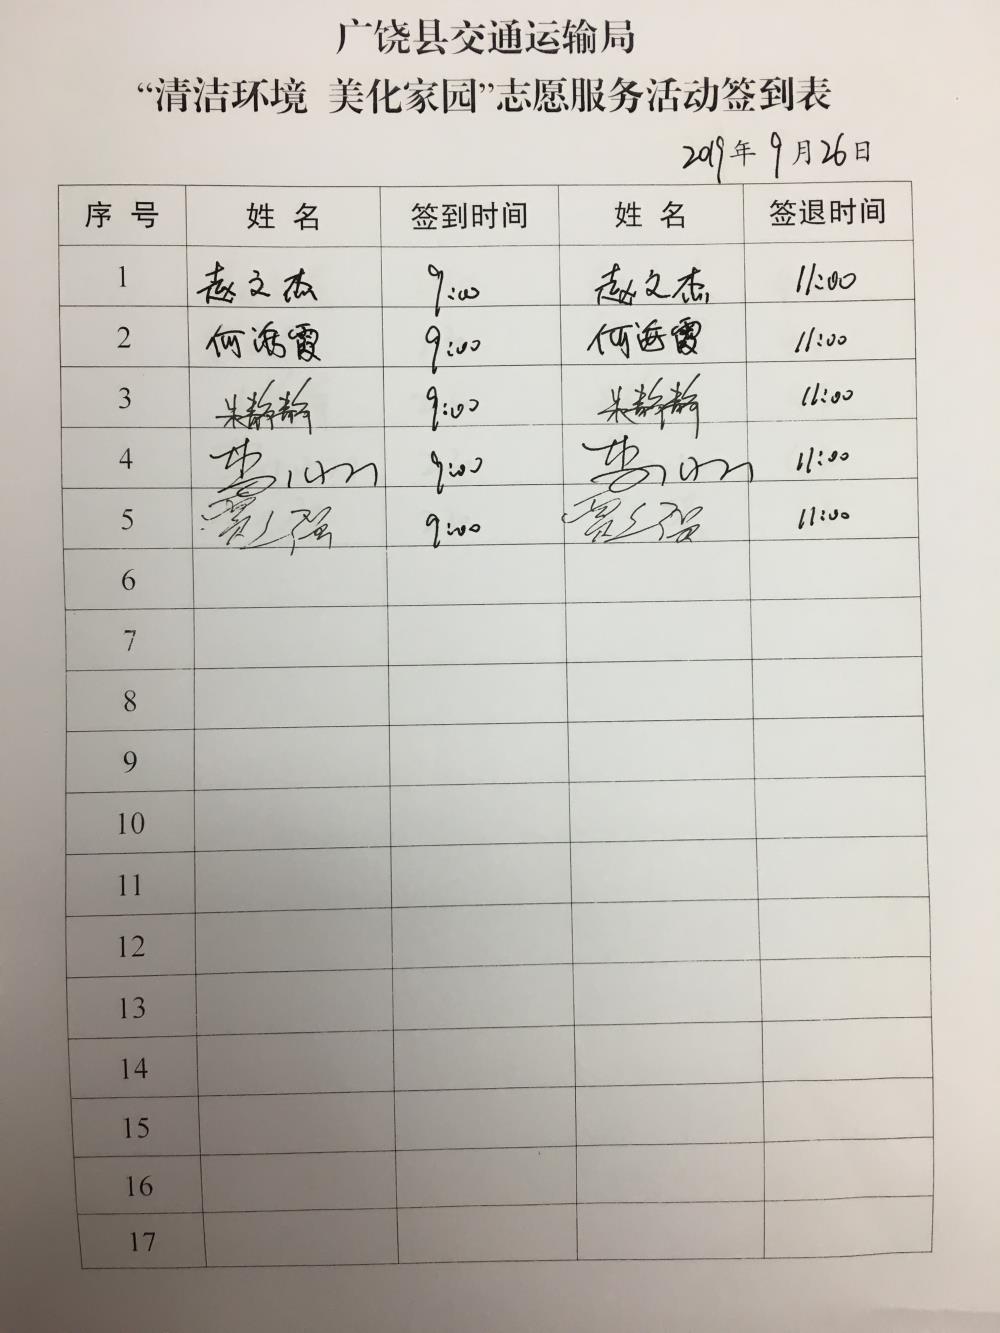 广饶县交通运输局
“清洁环境 美化家园”志愿服务活动签到表
2019年9月26日
序号 姓名 签到时间 姓名 签退时间
1 赵文杰 9:00 赵文杰 11:00
2 何海霞 9:00 何海霞 11:00
3 朱静静 9:00 朱静静 11:00
4 9:00 11:00
5 9:00 11:00
6
7
8
9
10
11
12
13
14
15
16
17